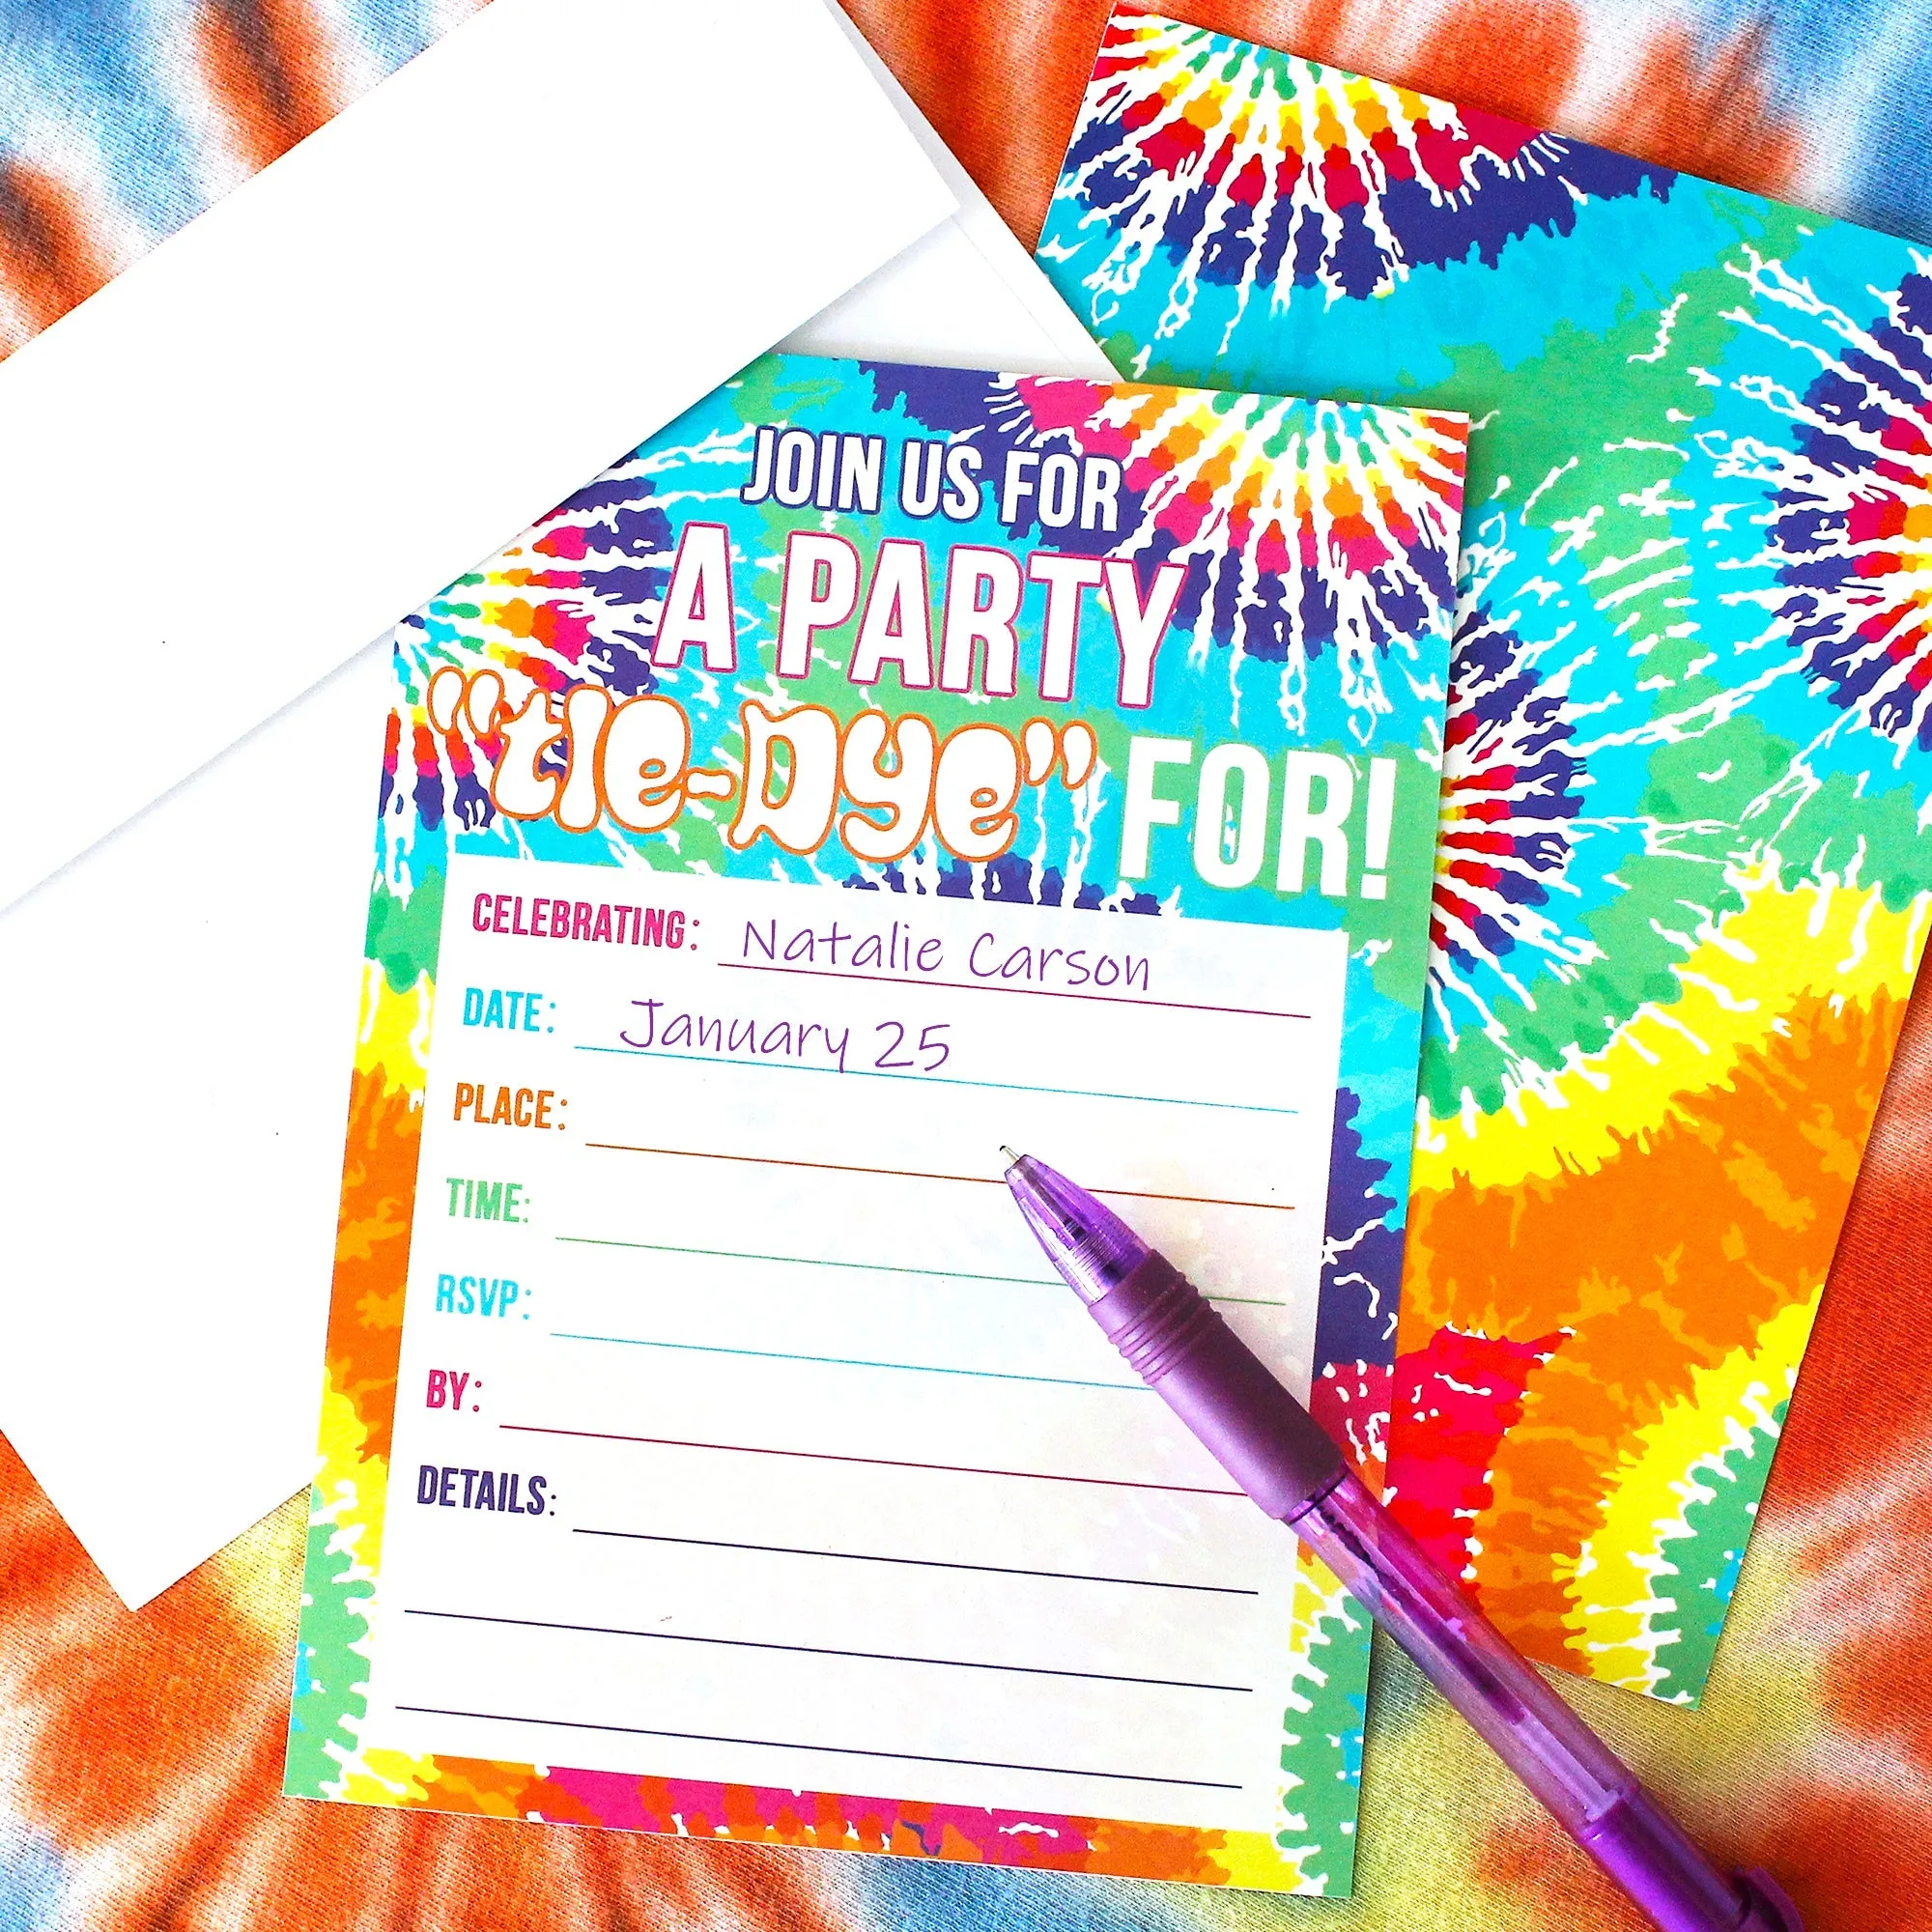 JOIN US FOR
A PARTY
“tie-Dye” FOR!
CELEBRATING: Natalie Carson
DATE: January 25
PLACE:
TIME:
RSVP:
BY:
DETAILS: